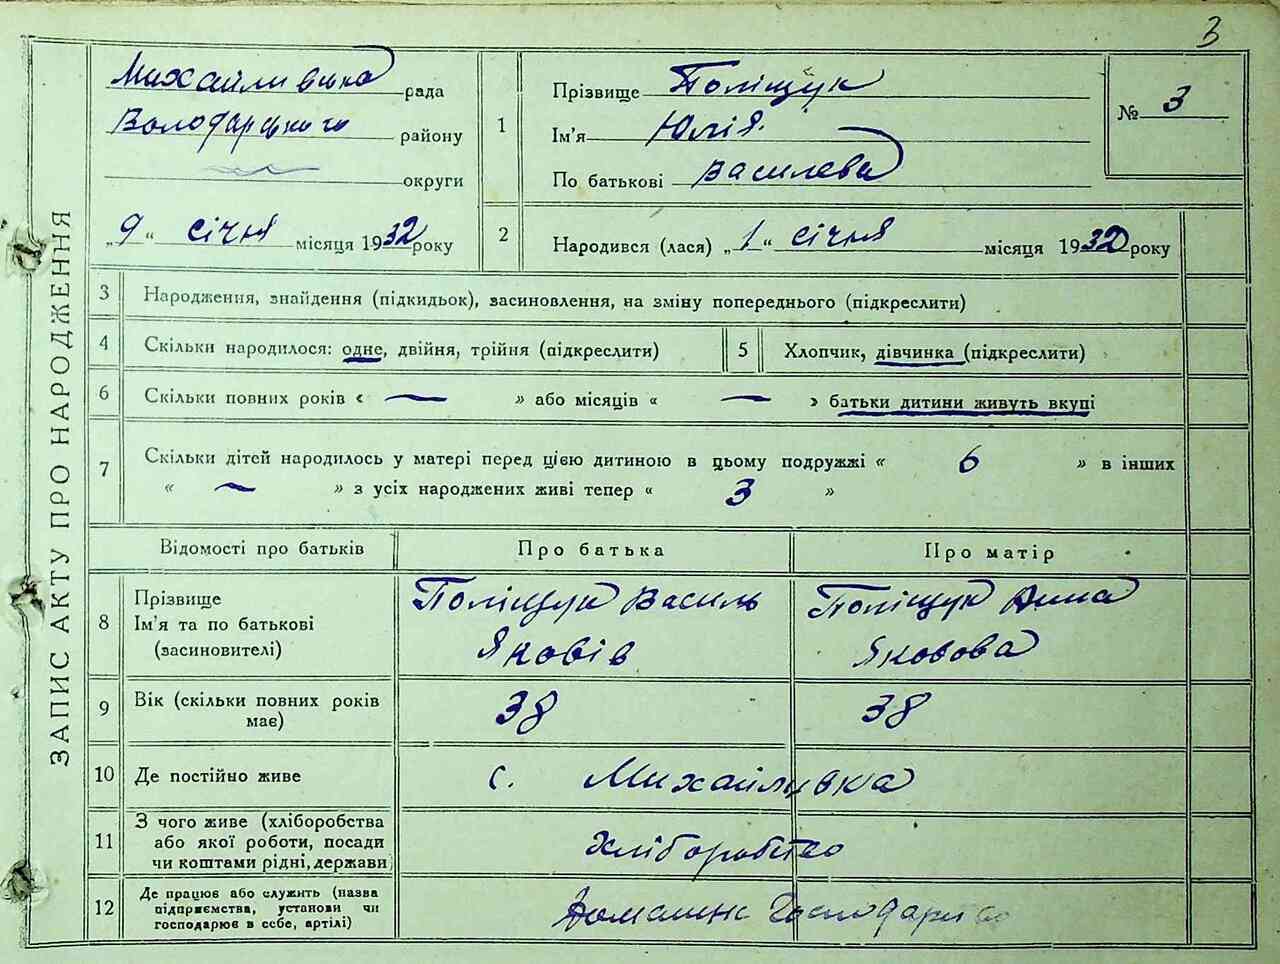 3
ЗАПИС АКТУ ПРО НАРОДЖЕННЯ
Михайливска рада
Володарського району
округи
„9“ січня місяця 1932 року
1
Прізвище Поліщук
Ім'я Юлія.
По батькові Василева
№ 3
2 Народився (лася) „1“ січня місяця 1932 року
3 Народження, знайдення (підкидьок), засиновлення, на зміну попереднього (підкреслити)
4 Скільки народилося: одне, двійня, трійня (підкреслити) 5 Хлопчик, дівчинка (підкреслити)
6 Скільки повних років « — » або місяців « — » батьки дитини живуть вкупі
7 Скільки дітей народилось у матері перед цією дитиною в цьому подружжі « 6 » в інших
« — » з усіх народжених живі тепер « 3 »
Відомості про батьків Про батька Про матір
8 Прізвище
Ім'я та по батькові
(засиновителі)
Поліщук Василь
Яковів
Поліщук Анна
Яковова
9 Вік (скільки повних років
має)
38 38
10 Де постійно живе с. Михайливка
11 З чого живе (хліборобства
або якої роботи, посади
чи коштами рідні, держави)
хліборобство
12 Де працює або служить (назва
підприємства, установи чи
господарює в себе, артілі)
Домашнє Господарство